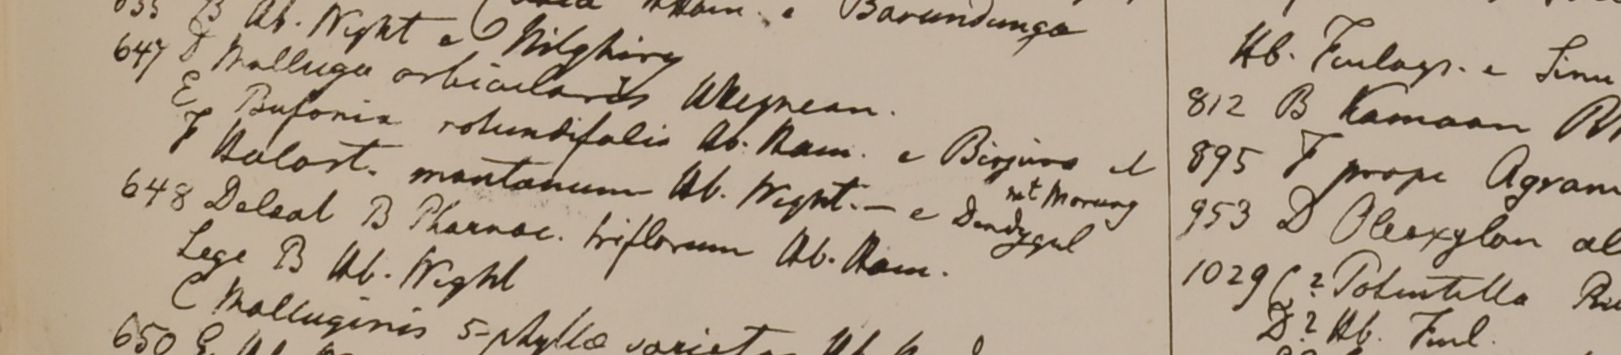 635 B Hb. Wight e Nilghiry
Ham. e Barundunga
647 D Mollugo orbicularis Wegnean.
E Bufonia rotundifolia Hb. Ham. e Birjura et
F Holost. montanum Hb. Wight. — e Dendygul
mt Morung
648 Deleat B Pharnac. triflorum Hb. Ham.
Lege B Hb. Wight
C Molluginis 5-phyllæ varietas Hb.
650 E Hb.
Hb. Finlays. e Sinu
812 B Kamaon
895 F prope Agram
953 D Oleoxylon
1029 C? Potentilla
D? Hb. Finl.